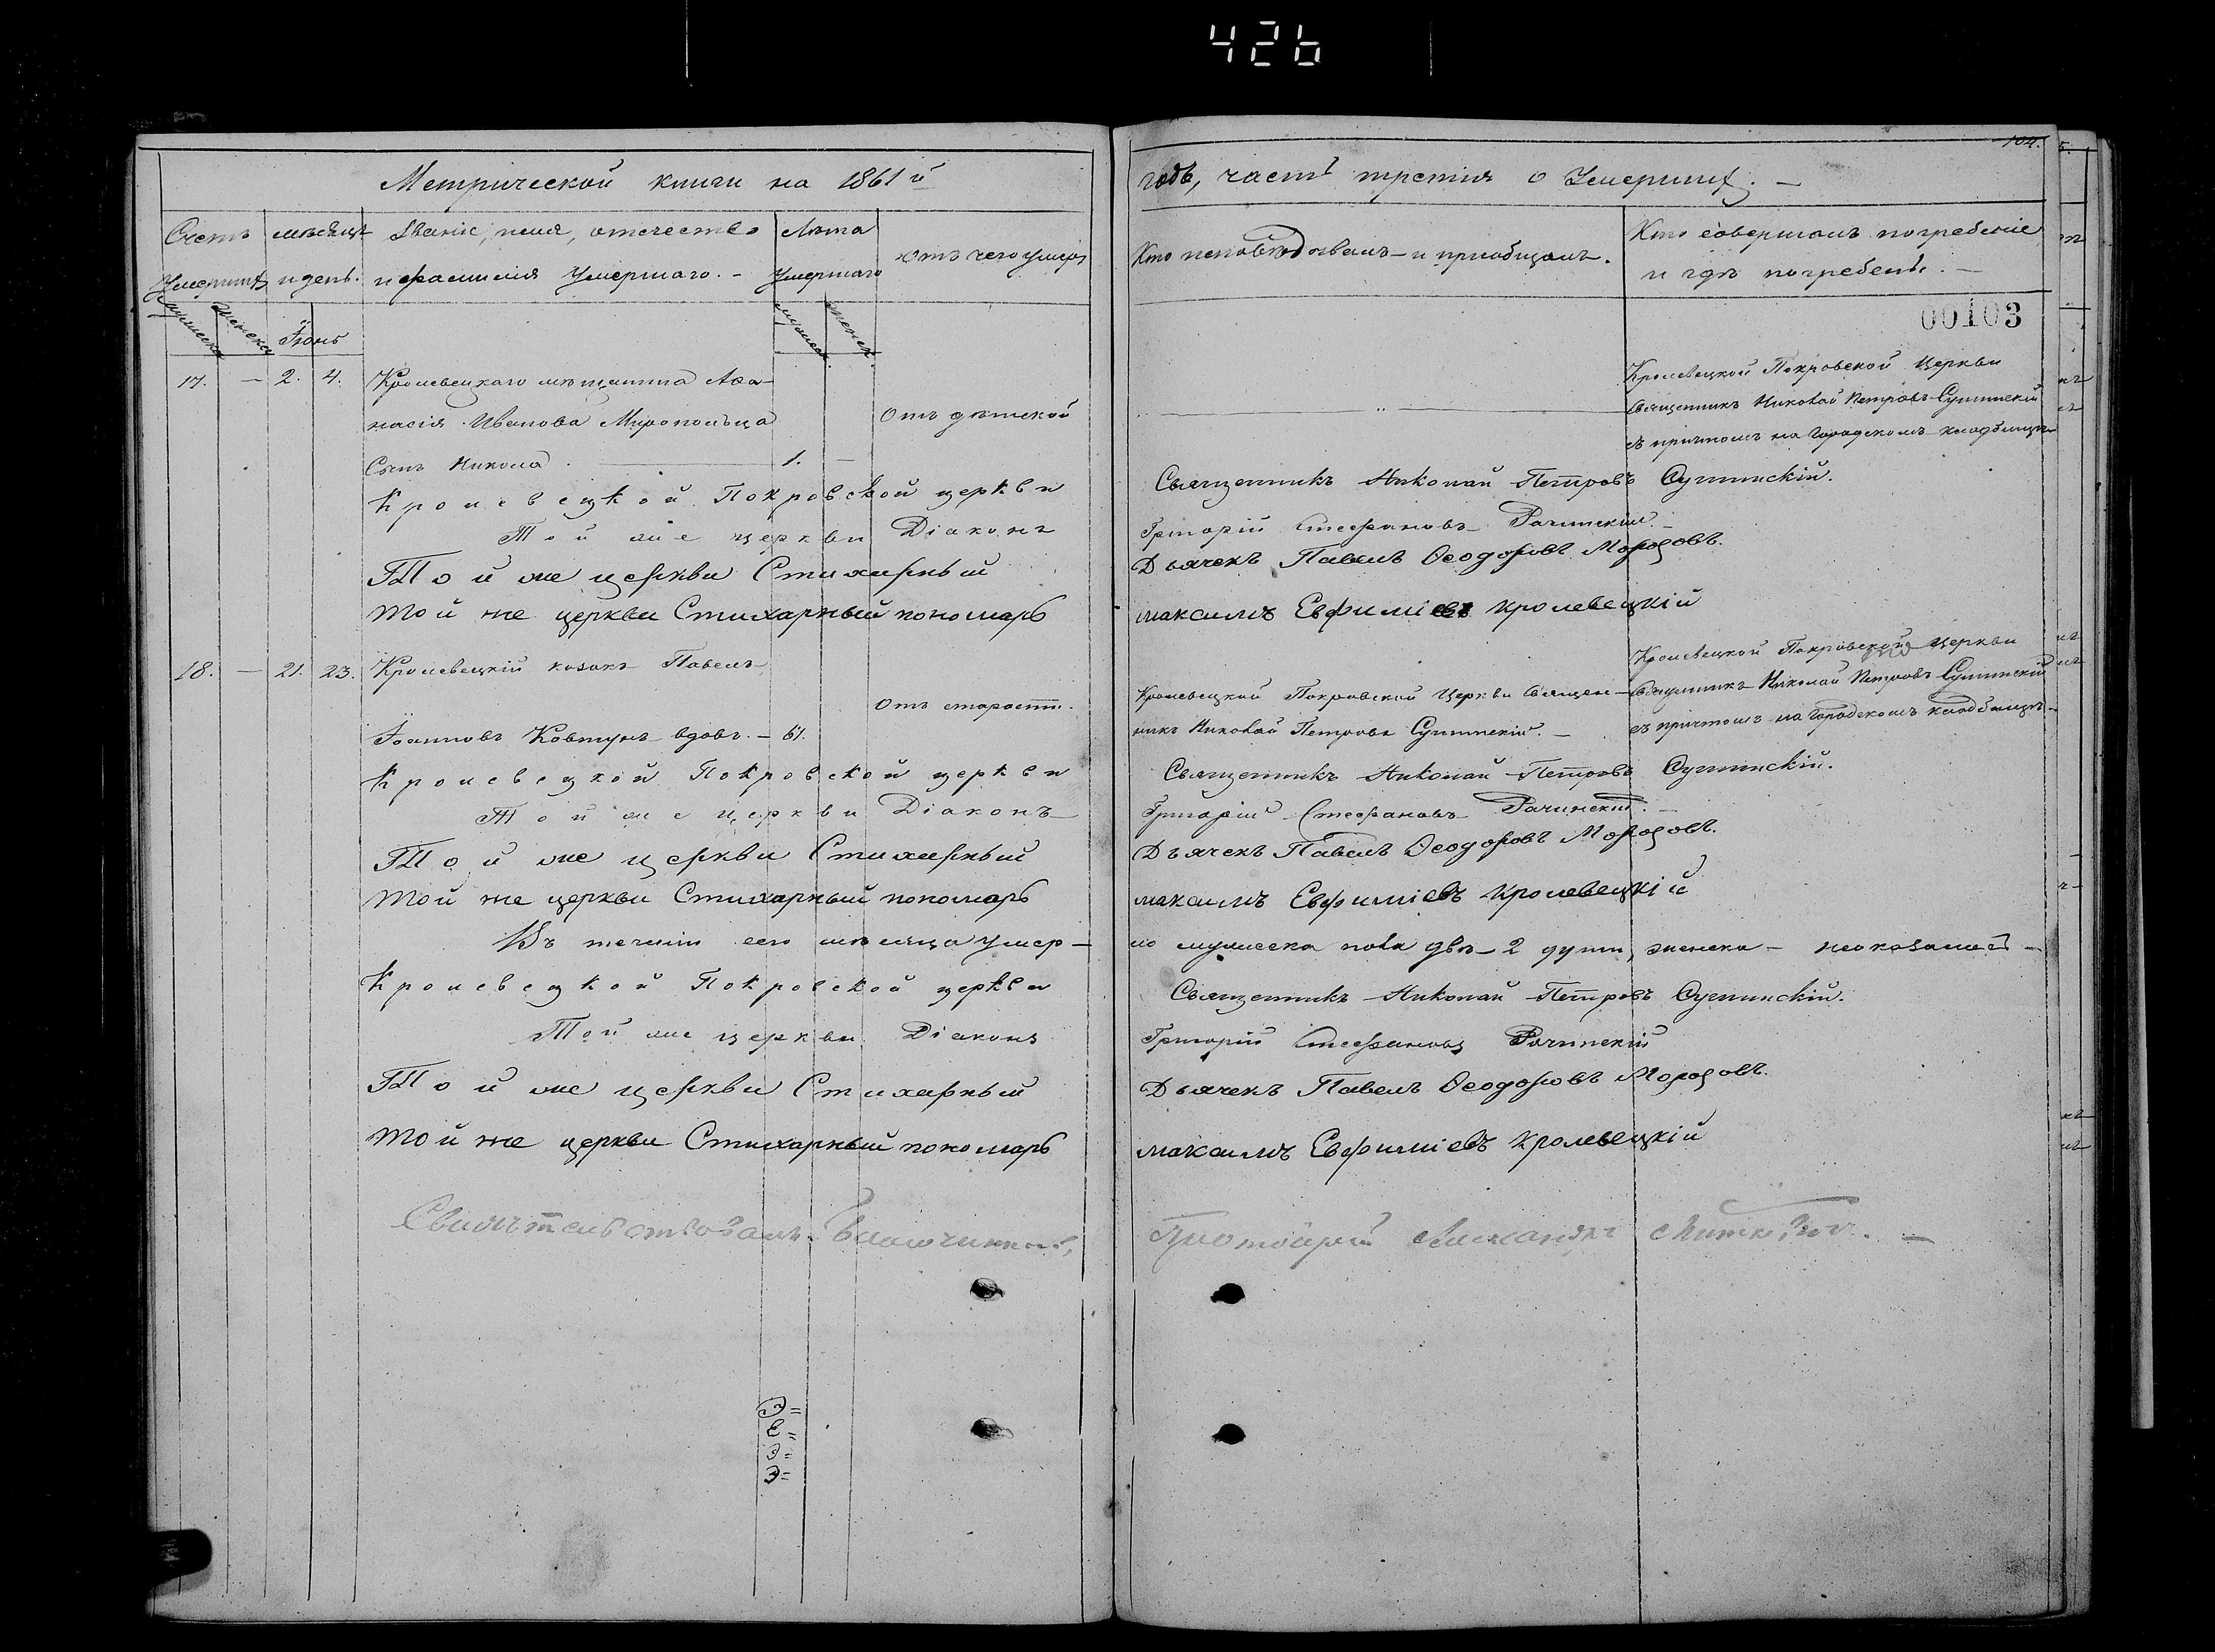 426
104.
Метрической книги на 1861й годъ, часть третія о Умершихъ. —
Счетъ Умершихъ
Мѣсяцъ и день.
Званіе, имя, отечество и фамилія Умершаго. —
Лѣта Умершаго
отъ чего умеръ
Кто исповѣдывалъ и пріобщалъ.
Кто совершалъ погребеніе и гдѣ погребенъ. —
00103
мужеска
женска
Іюнь
мужеск
женск
17. — 2. 4. Кролевецкаго мѣщанина Афа-
насія Иванова Миропольца
Сынъ Никола. — 1. —
Отъ дѣтской
Кролевецкой Покровской Церкви
Священникъ Николай Петровъ Сулимскій
съ причтомъ на Городскомъ кладбищѣ
Кролевецкой Покровской церкви Священникъ Николай Петровъ Сулимскій.
Той же церкви Діаконъ Григорій Стефановъ Рачинскій. —
Той же церкви Стихарный Дьячекъ Павелъ Ѳеодоровъ Морозовъ.
той же церкви Стихарный пономарь максимъ Евфиміевъ кролевецкій
18. — 21. 23. Кролевецкій козакъ Павелъ
Іоанновъ Ковтунъ вдовъ. — 61.
Отъ старости.
Кролевецкой Покровской Церкви Священ-
никъ Николай Петровъ Сулимскій. —
Кролевецкой Покровской Церкви
Священникъ Николай Петровъ Сулимскій
съ причтомъ на Городскомъ кладбищѣ —
Кролевецкой Покровской церкви Священникъ Николай Петровъ Сулимскій.
Той же церкви Діаконъ Григорій Стефановъ Рачинскій. —
Той же церкви Стихарный Дьячекъ Павелъ Ѳеодоровъ Морозовъ.
той же церкви Стихарный пономарь максимъ Евфиміевъ кролевецкій
Въ теченіи сего мѣсяца умер-ло мужеска пола двѣ — 2 души, женска —
Кролевецкой Покровской церкви Священникъ Николай Петровъ Сулимскій.
Той же церкви Діаконъ Григорій Стефановъ Рачинскій
Той же церкви Стихарный Дьячекъ Павелъ Ѳеодоровъ Морозовъ.
той же церкви Стихарный пономарь максимъ Евфиміевъ кролевецкій
Свидѣтельствовалъ Благочинный, Протоіерей Александръ